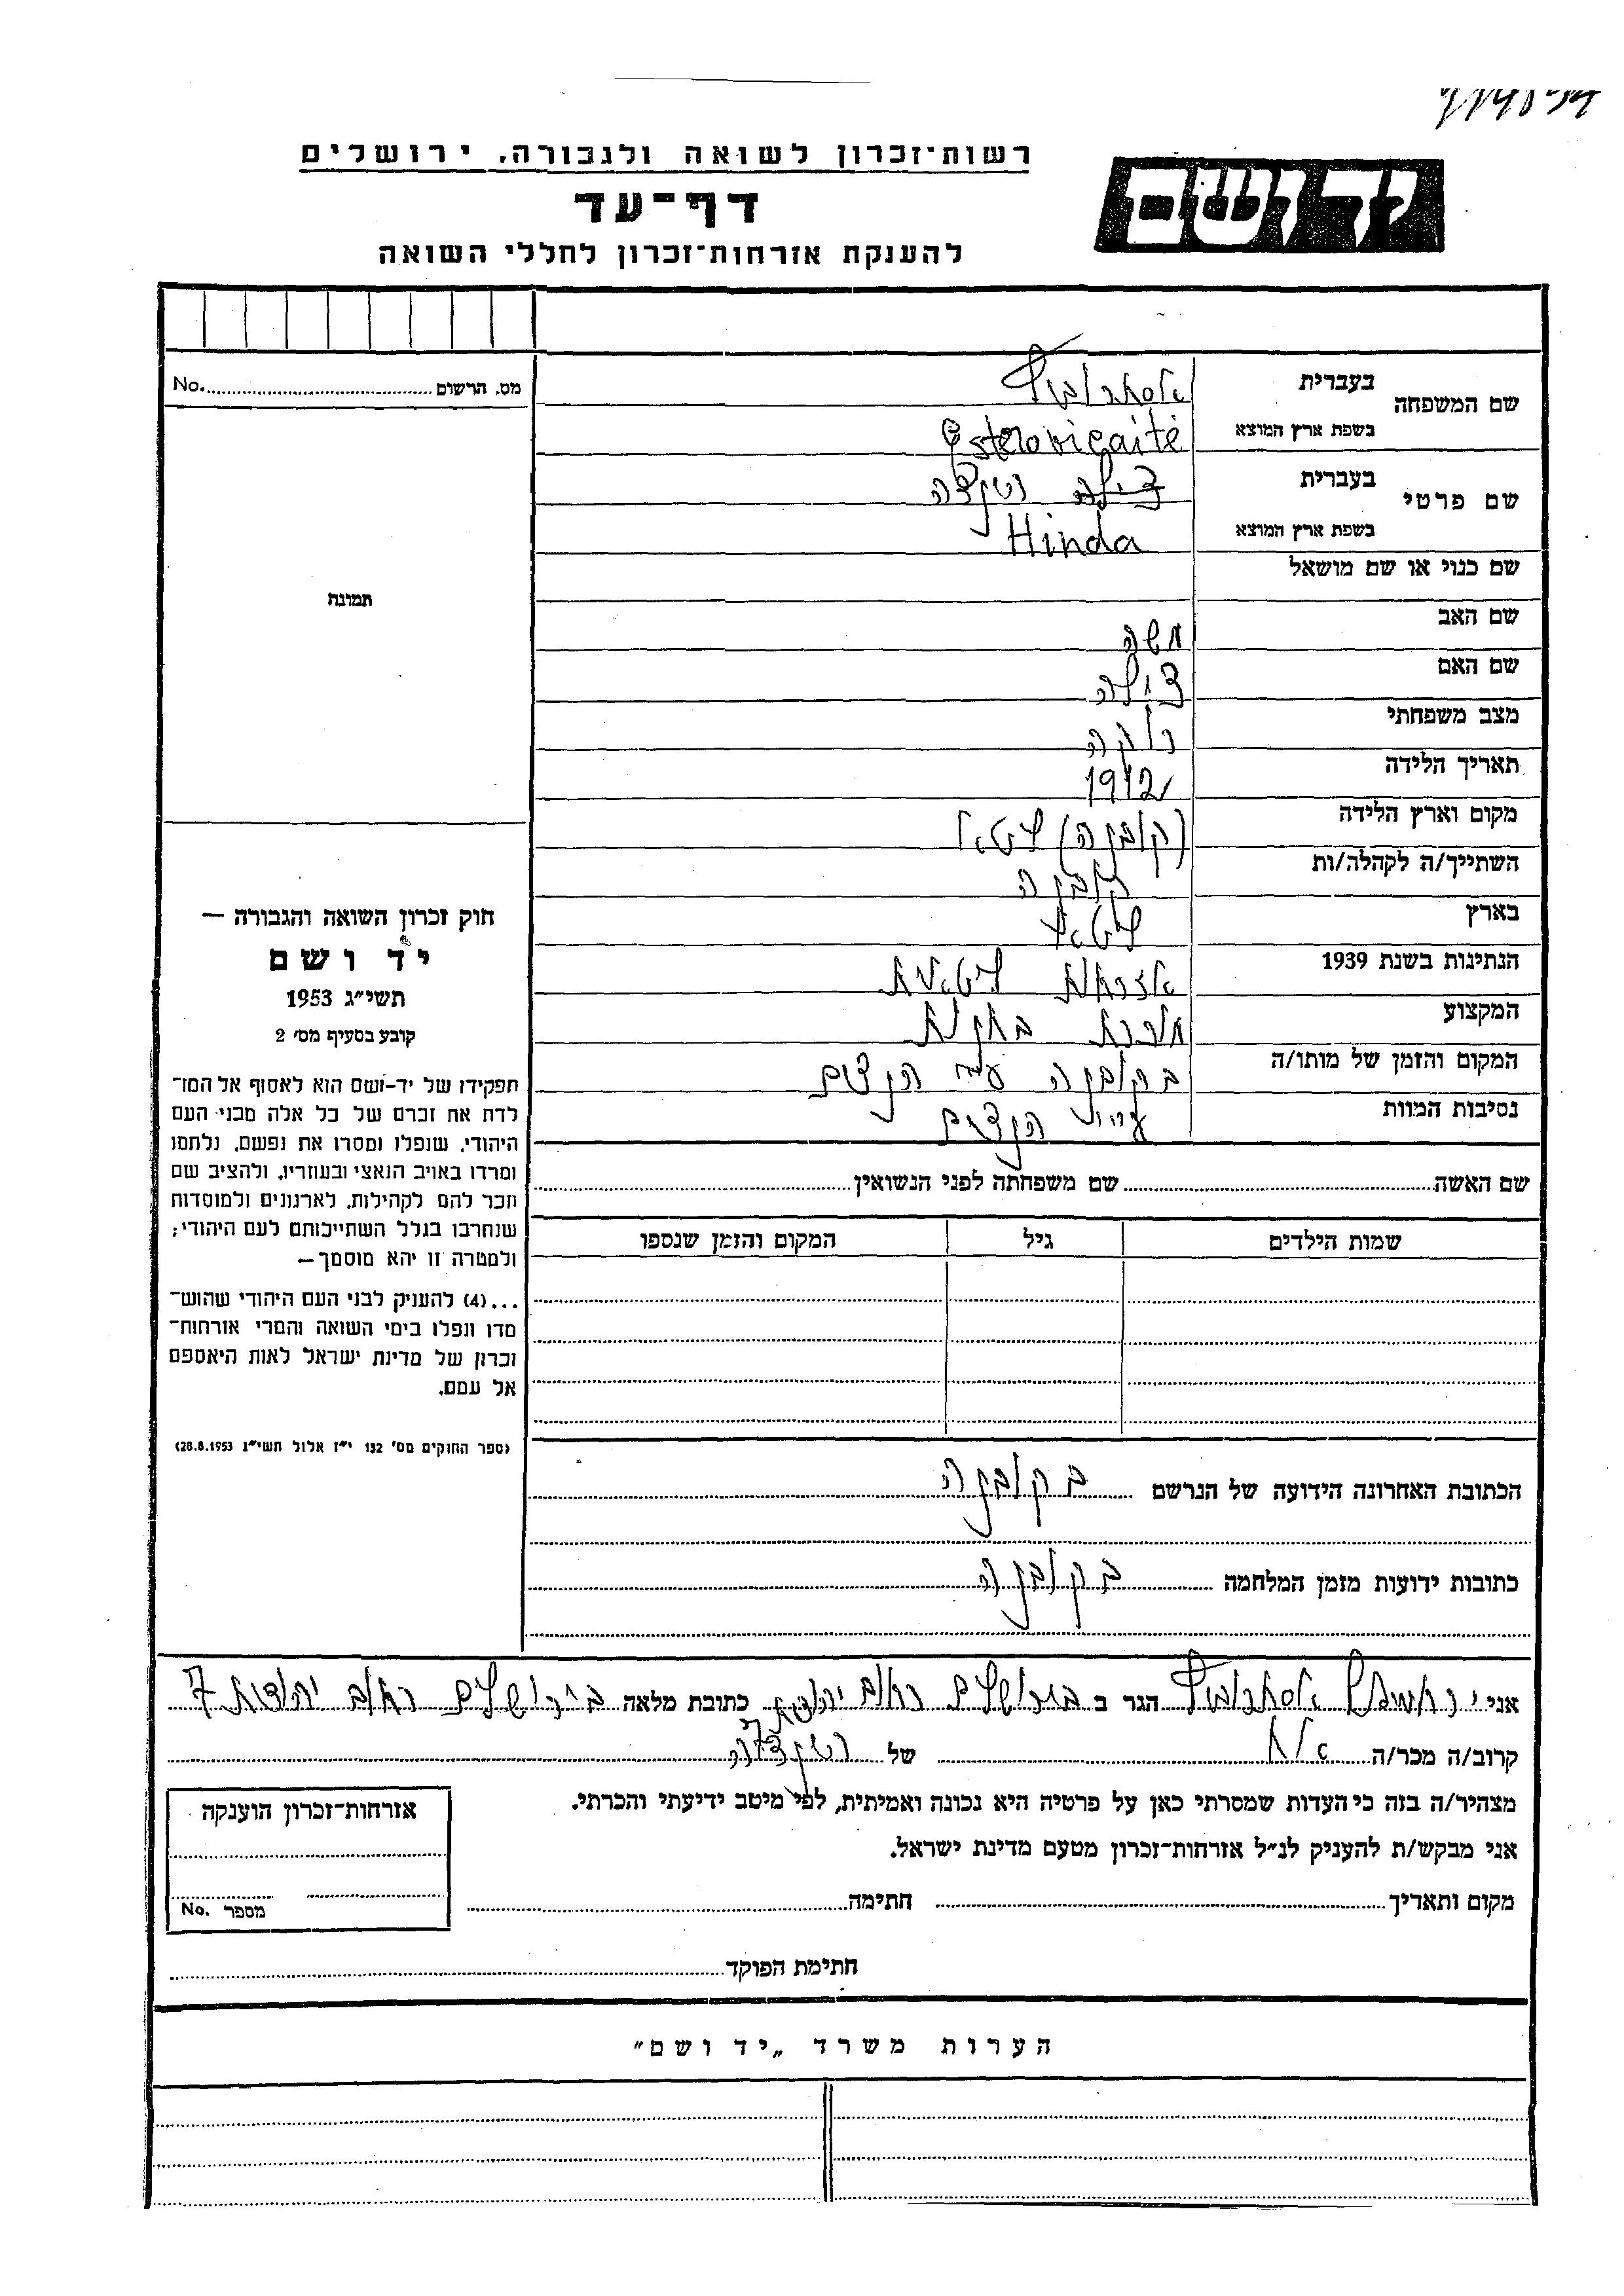 רשות־זכרון לשואה ולגבורה, ירושלים
דף־עד
להענקת אזרחות־זכרון לחללי השואה
יד ושם
שם המשפחה
בעברית
בשפת ארץ המוצא Esterovicaitė
שם פרטי
בעברית צילה הינדה
בשפת ארץ המוצא Hinda
שם כנוי או שם מושאל
שם האב משה
שם האם צילה
מצב משפחתי רווקה
תאריך הלידה 1912
מקום וארץ הלידה (קובנה) ליטא
השתייך/ה לקהלה/ות קובנה
בארץ ליטא
הנתינות בשנת 1939 אזרחות ליטאית
המקצוע
המקום והזמן של מותו/ה בקובנה ע"י הנאצים
נסיבות המוות ע"י הנאצים
מס. הרשום No.
תמונה
חוק זכרון השואה והגבורה —
יד ושם
תשי״ג 1953
קובע בסעיף מס׳ 2
תפקידו של יד-ושם הוא לאסוף אל המו־
לדת את זכרם של כל אלה מבני העם
היהודי, שנפלו ומסרו את נפשם, נלחמו
ומרדו באויב הנאצי ובעוזריו, ולהציב שם
וזכר להם לקהילות, לארגונים ולמוסדות
שנחרבו בגלל השתייכותם לעם היהודי;
ולמטרה זו יהא מוסמך—
...(4) להעניק לבני העם היהודי שהוש־
מדו ונפלו בימי השואה והמרי אזרחות־
זכרון של מדינת ישראל לאות היאספם
אל עמם.
(ספר החוקים מס׳ 132 י״ז אלול תשי״ג 28.8.1953)
שם האשה שם משפחתה לפני הנשואין
שמות הילדים גיל המקום והזמן שנספו
הכתובת האחרונה הידועה של הנרשם בקובנה
כתובות ידועות מזמן המלחמה בקובנה
אני הגר ב בירושלים רחוב כתובת מלאה בירושלים רחוב 7
קרוב/ה מכר/ה אח של הינדה
מצהיר/ה בזה כי העדות שמסרתי כאן על פרטיה היא נכונה ואמיתית, לפי מיטב ידיעתי והכרתי.
אני מבקש/ת להעניק לנ״ל אזרחות־זכרון מטעם מדינת ישראל.
מקום ותאריך חתימה
אזרחות־זכרון הוענקה
מספר No.
חתימת הפוקד
הערות משרד „יד ושם״